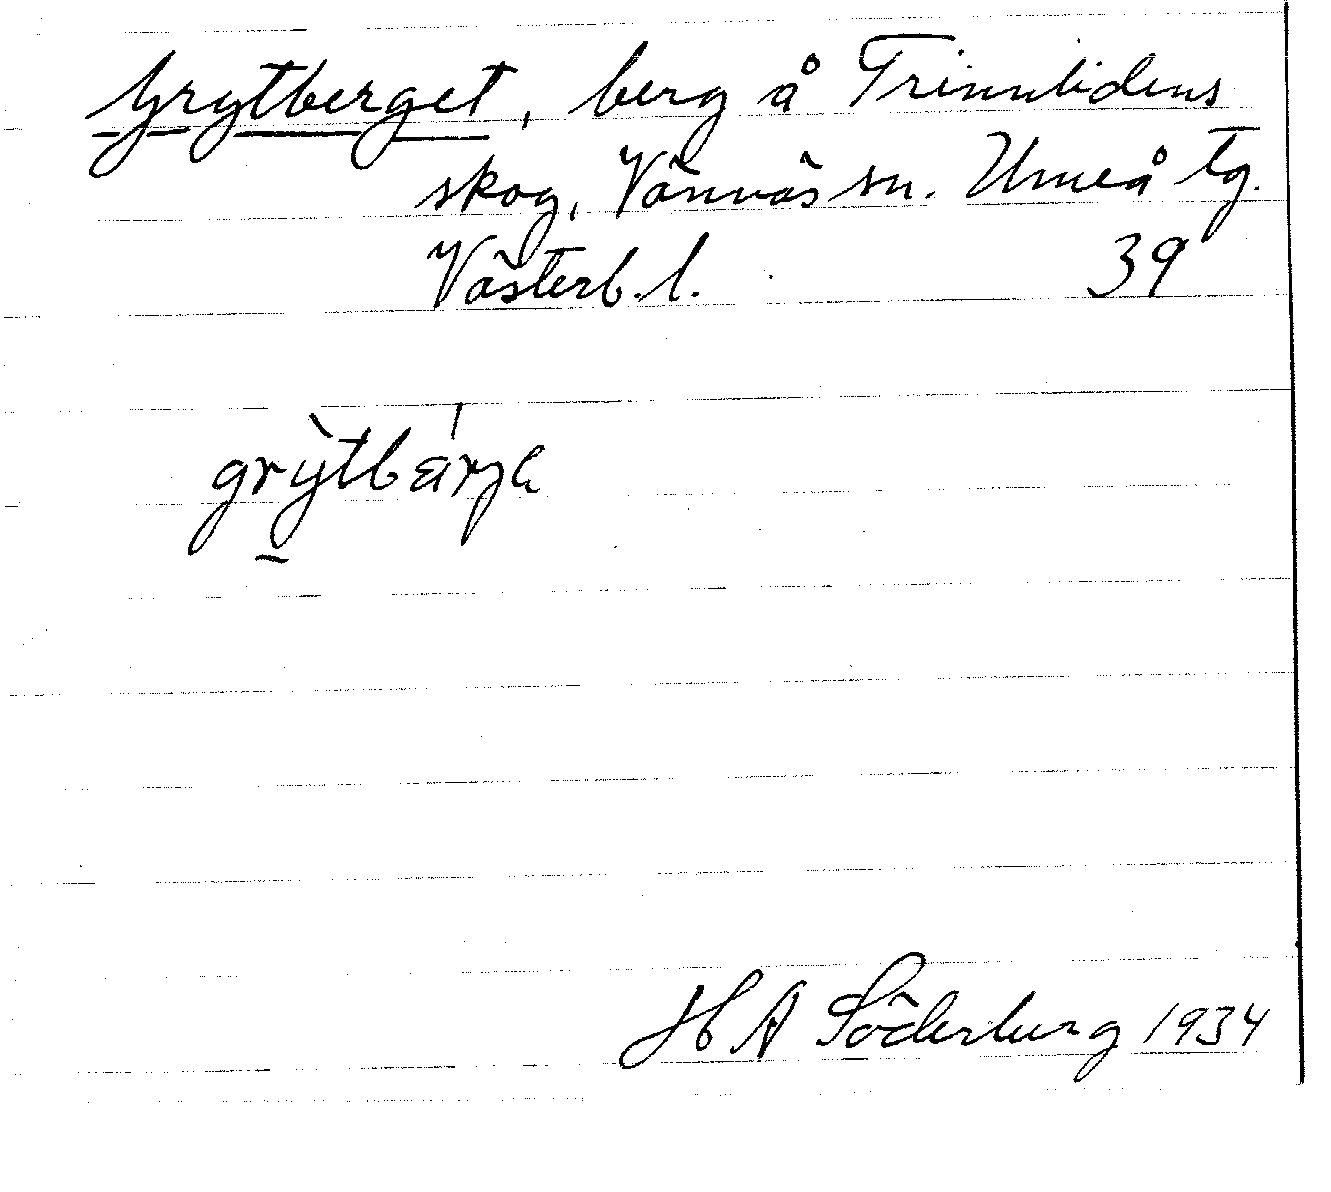 Grytberget, berg å Trinnlidens
skog, Vännäs sn. Umeå tg.
Västerb. l. 39
grỳtbärjɛ
H A Söderberg 1934